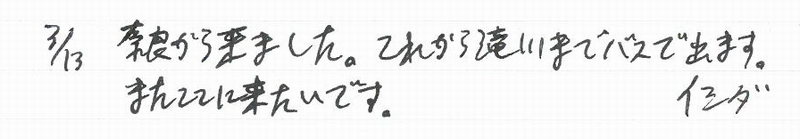 3/13 奈良から来ました。これから滝川までバスで出ます。
またここに来たいです。 イシダ